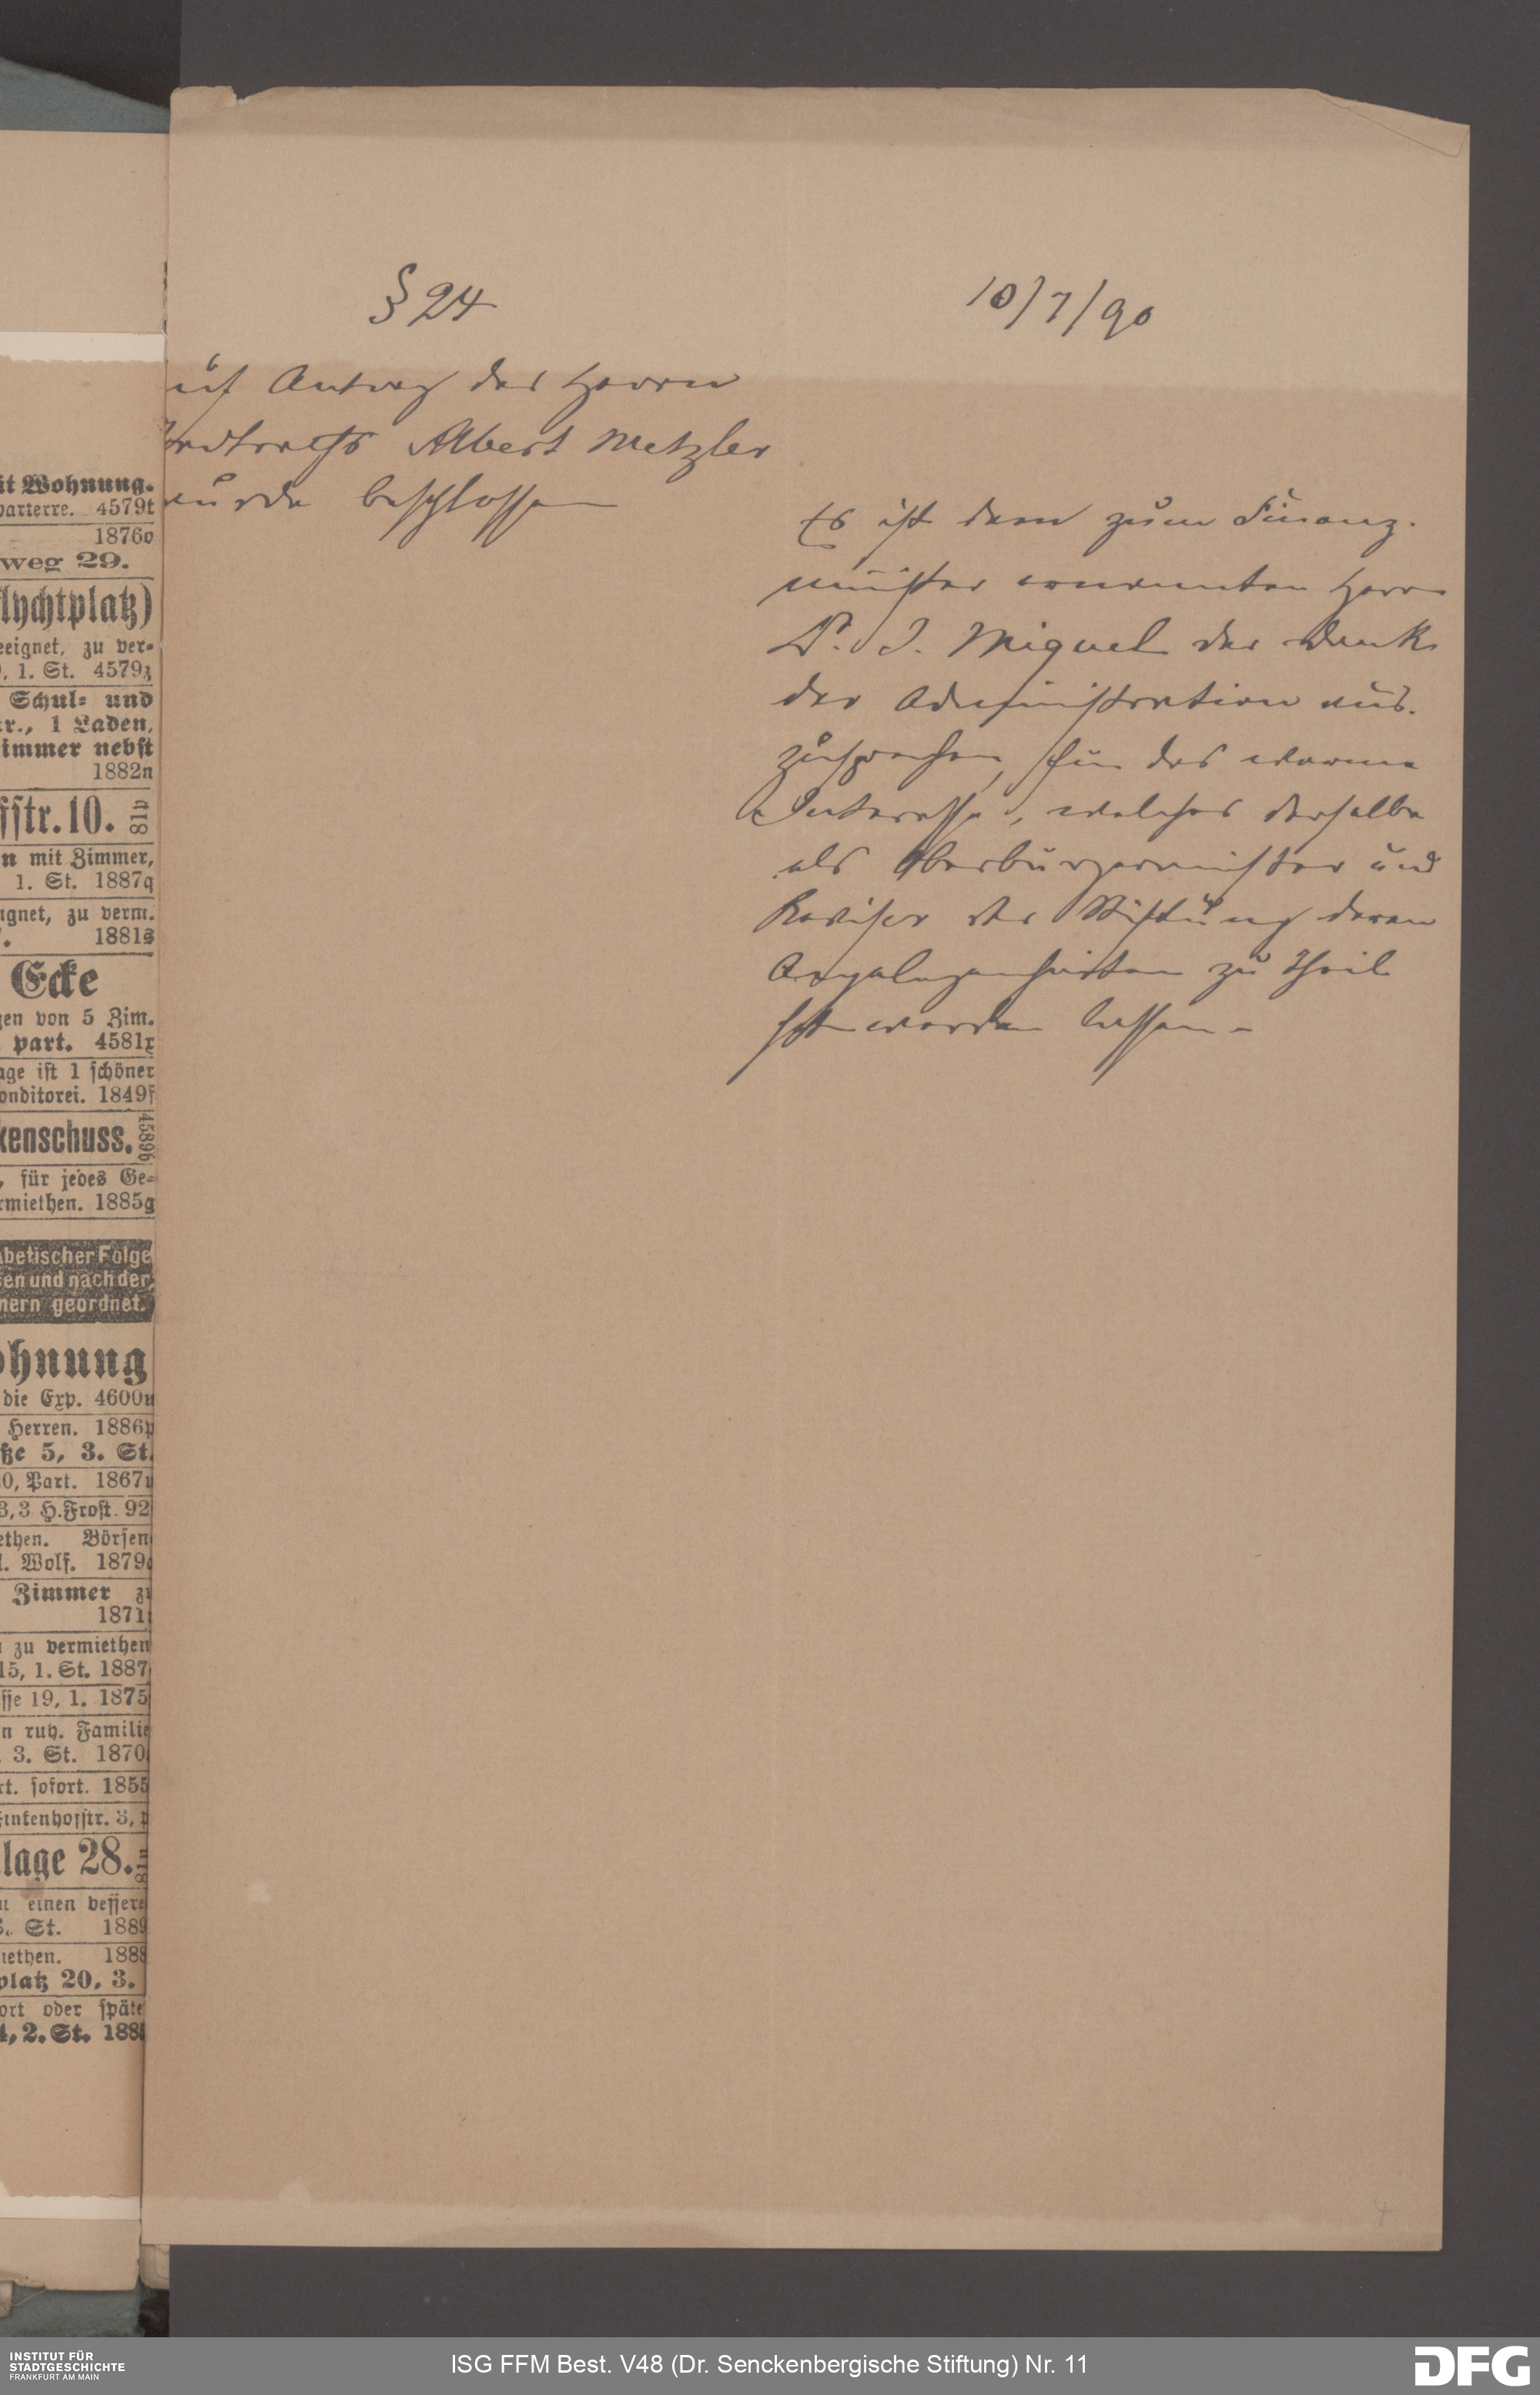 it Wohnung.
parterre. 4579t
1876o
weg 29.
lychtplatz)
eeignet, zu ver-
, 1. St. 4579z
Schul- und
tr., 1 Laden,
immer nebst
1882n
fstr. 10. 81v
n mit Zimmer,
1. St. 1887q
ignet, zu verm.
1881s
Ecke
gen von 5 Zim.
part. 4581x
age ist 1 schöner
onditorei. 1849f
kenschuss. 4589b
, für jedes Ge-
rmiethen. 1885g
abetischer Folge
sen und nach der
nern geordnet.
ohnung
die Exp. 4600u
Herren. 1886p
ße 5, 3. St.
0, Part. 1867u
3, 3 H. Frost. 92
ethen. Börsen
l. Wolf. 1879
Zimmer zu
1871
zu vermiethen
15, 1. St. 1887
sse 19, 1. 1875
n ruh. Familie
3. St. 1870
rt. sofort. 1855
Finkenhofstr. 3, p
lage 28. 81n
n einen bessere
St. 1889
iethen. 1888
platz 20, 3.
ort oder späte
4, 2. St. 188
§ 24
10/7/90
auf Antrag des Herrn
Stadtraths Albert Metzler
wurde beschlossen
Es ist dem zum Finanz-
minister ernannten Herrn
Dr. J. Miquel der Dank
der Administration aus-
zusprechen, für das warme
Interesse, welches derselbe
als Oberbürgermeister und
Revisor der Stiftung deren
Angelegenheiten zu Theil
hat werden lassen -
4
INSTITUT FÜR
STADTGESCHICHTE
FRANKFURT AM MAIN
ISG FFM Best. V48 (Dr. Senckenbergische Stiftung) Nr. 11
DFG